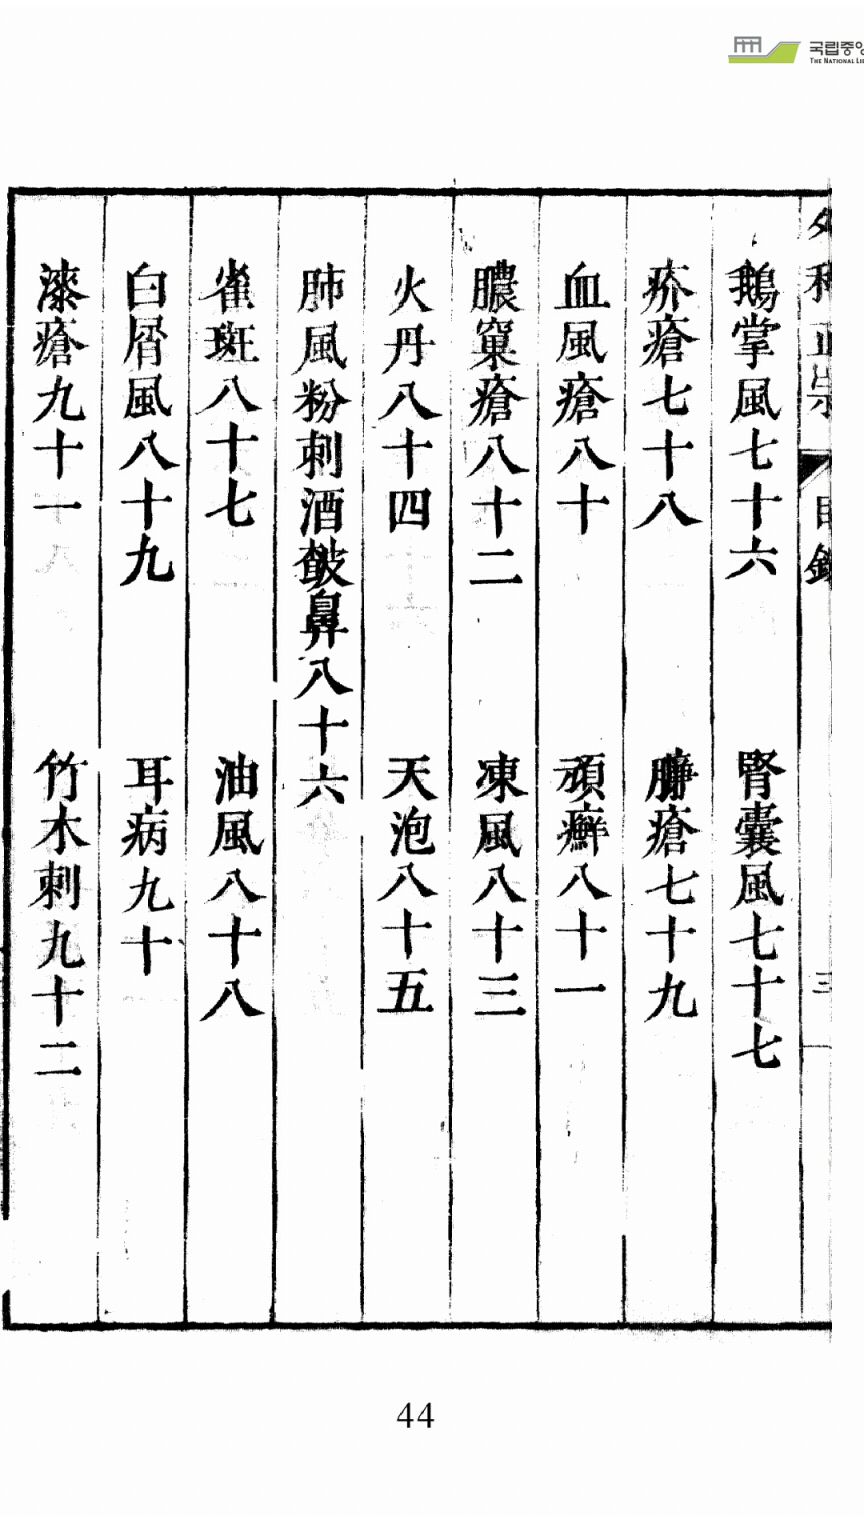 국립중앙
THE NATIONAL LI
外科正宗 目錄 三
鵝掌風七十六 腎囊風七十七
疥瘡七十八 臁瘡七十九
血風瘡八十 頑癬八十一
膿窠瘡八十二 凍風八十三
火丹八十四 天泡八十五
肺風粉刺酒皻鼻八十六
雀斑八十七 油風八十八
白屑風八十九 耳病九十
漆瘡九十一 竹木刺九十二
44